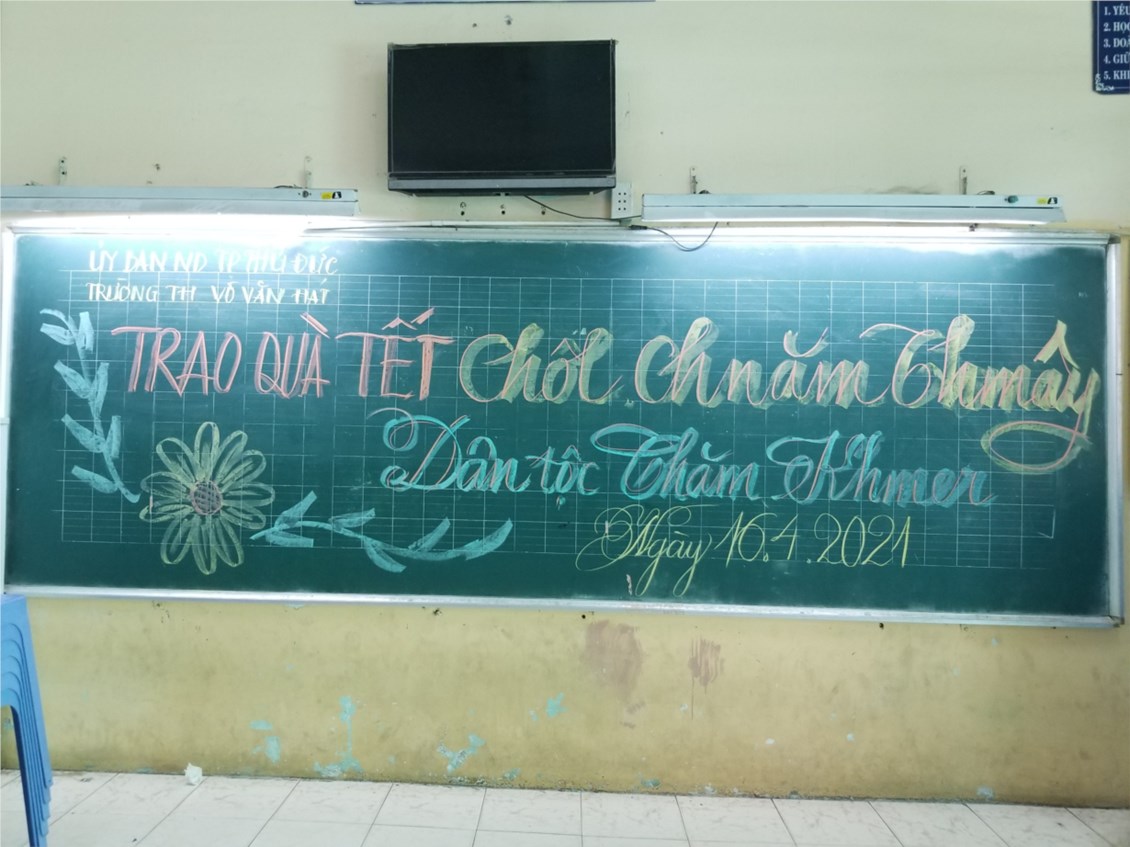 1. YÊU
2. HỌC
3. ĐOÀ
4. GIỮ
5. KHI
ỦY BAN ND TP THỦ ĐỨC
TRƯỜNG TH VÕ VĂN HÁT
TRAO QUÀ TẾT Chôl Chnăm Thmây
Dân tộc Chăm Khmer
Ngày 16.4.2021